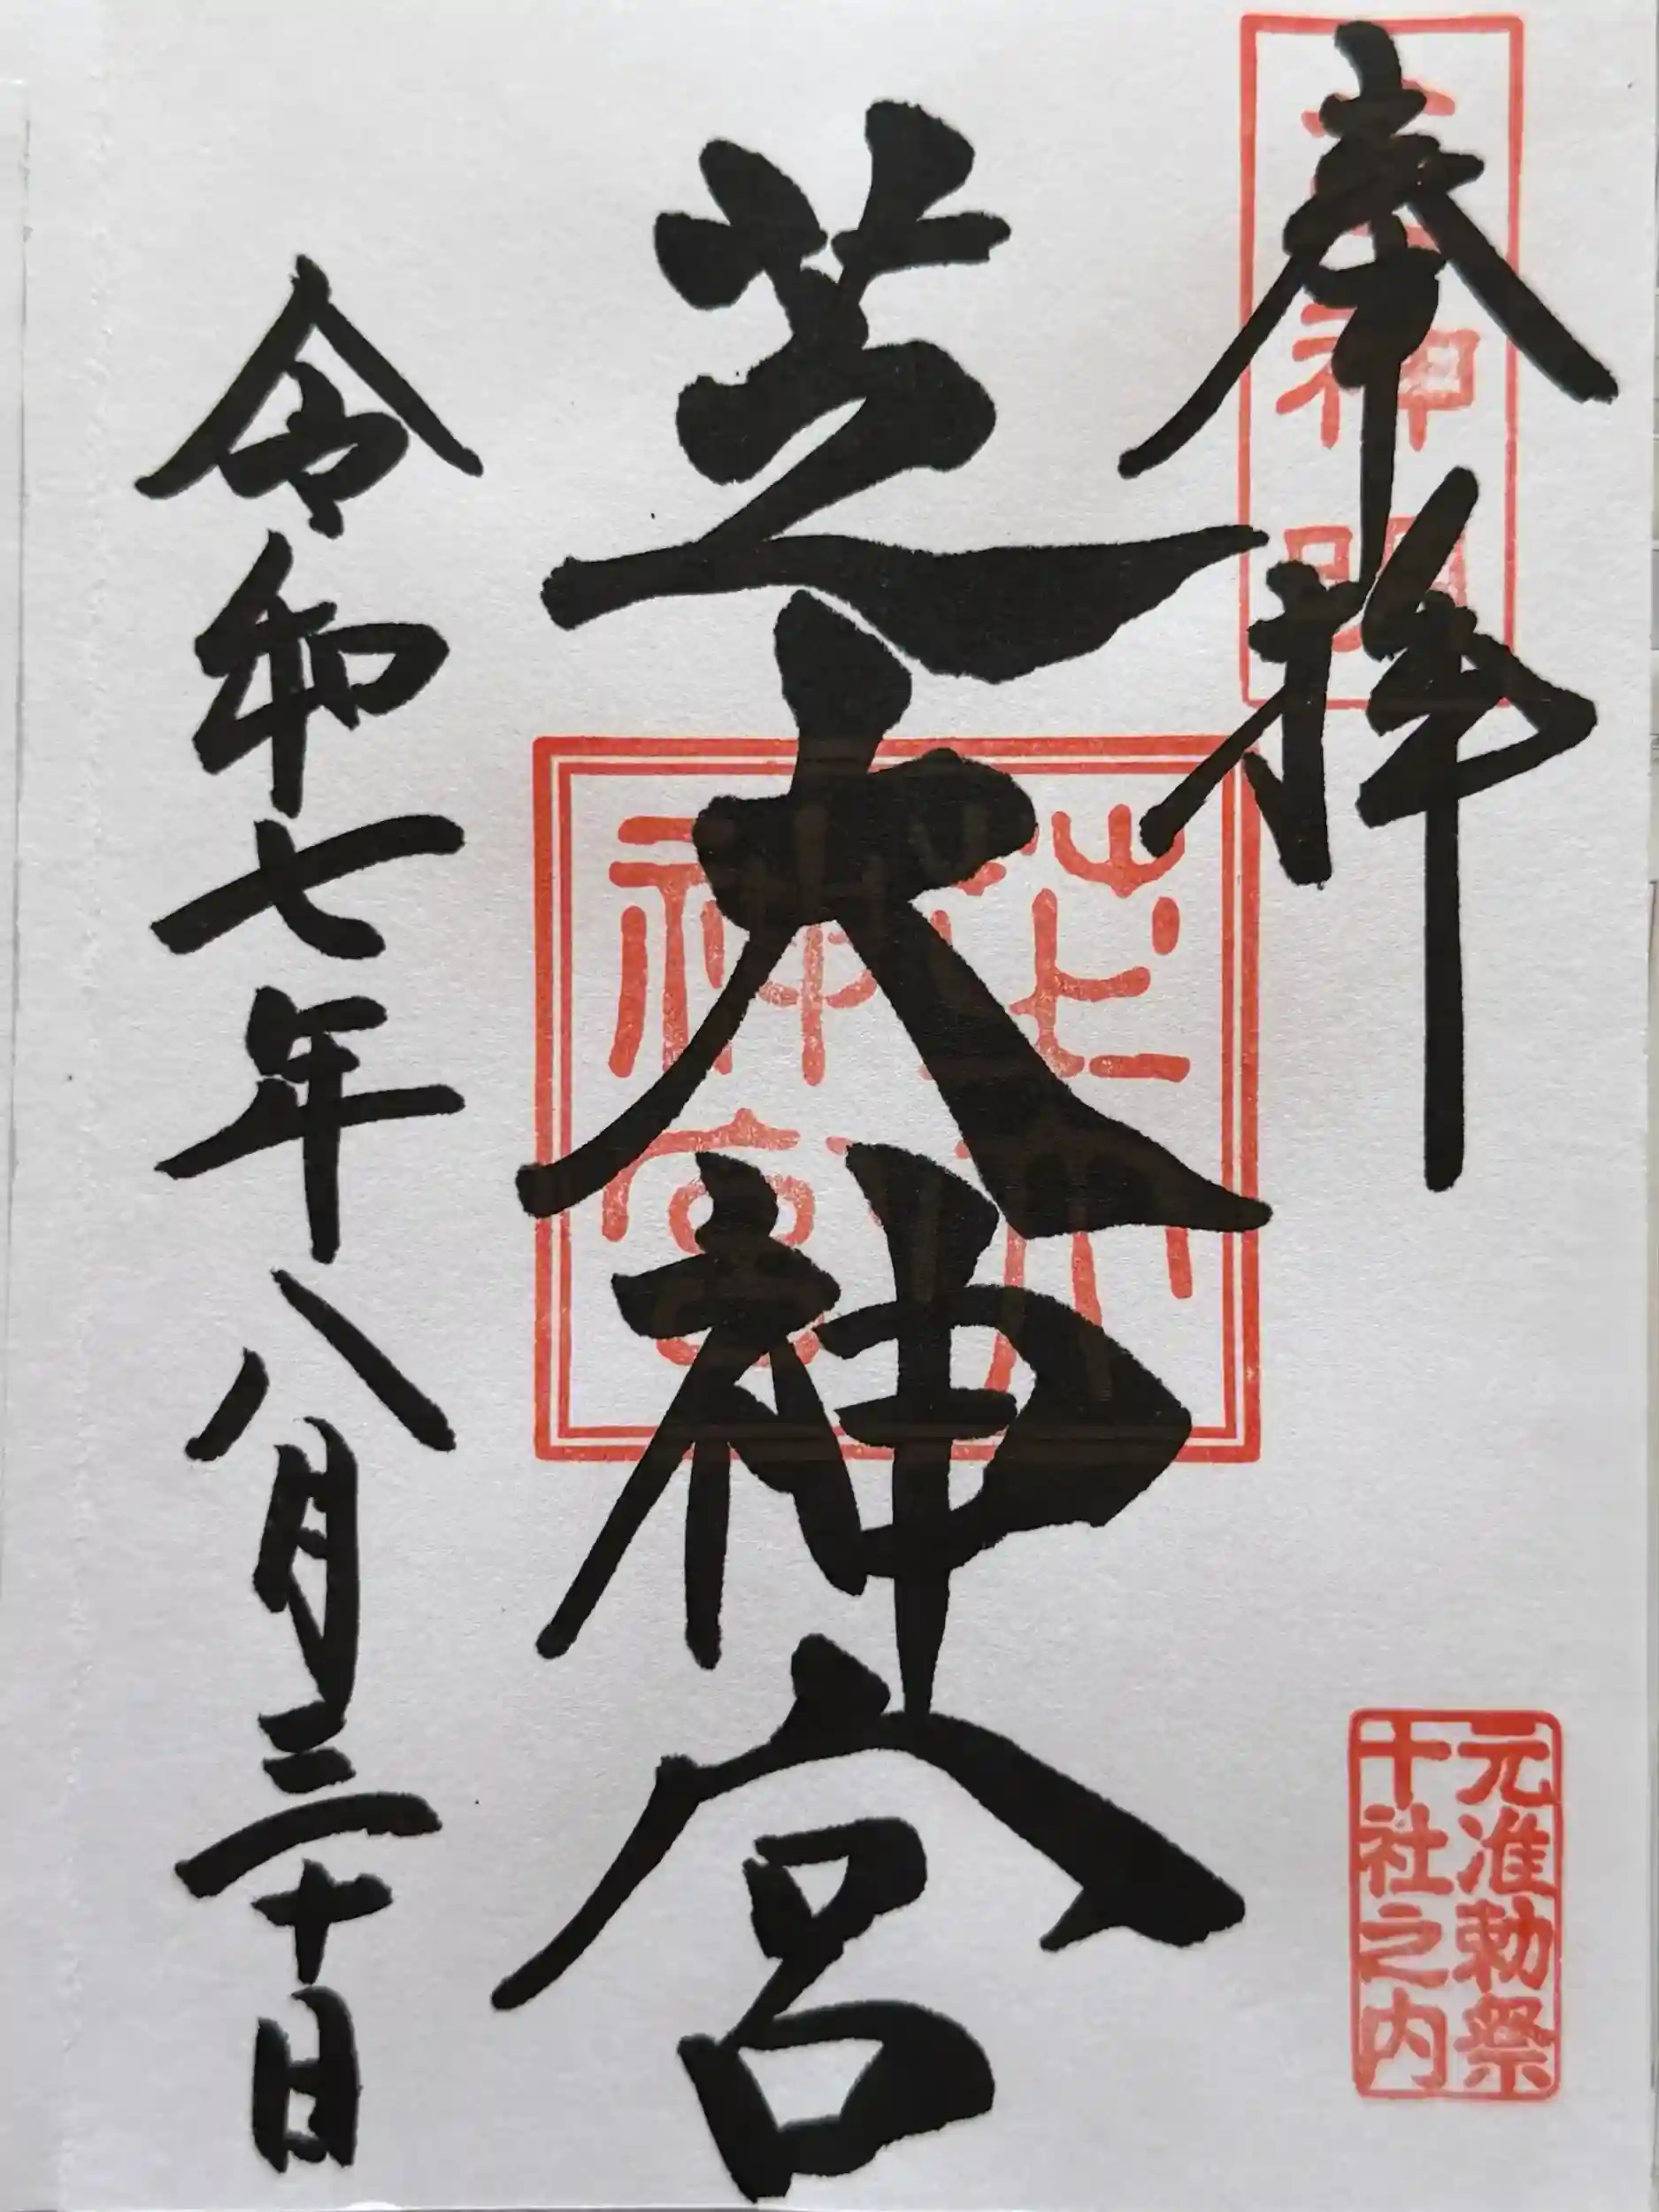 奉拝
元神明
芝大神宮
芝大神宮
令和七年八月三十日
元准勅祭
十社之内